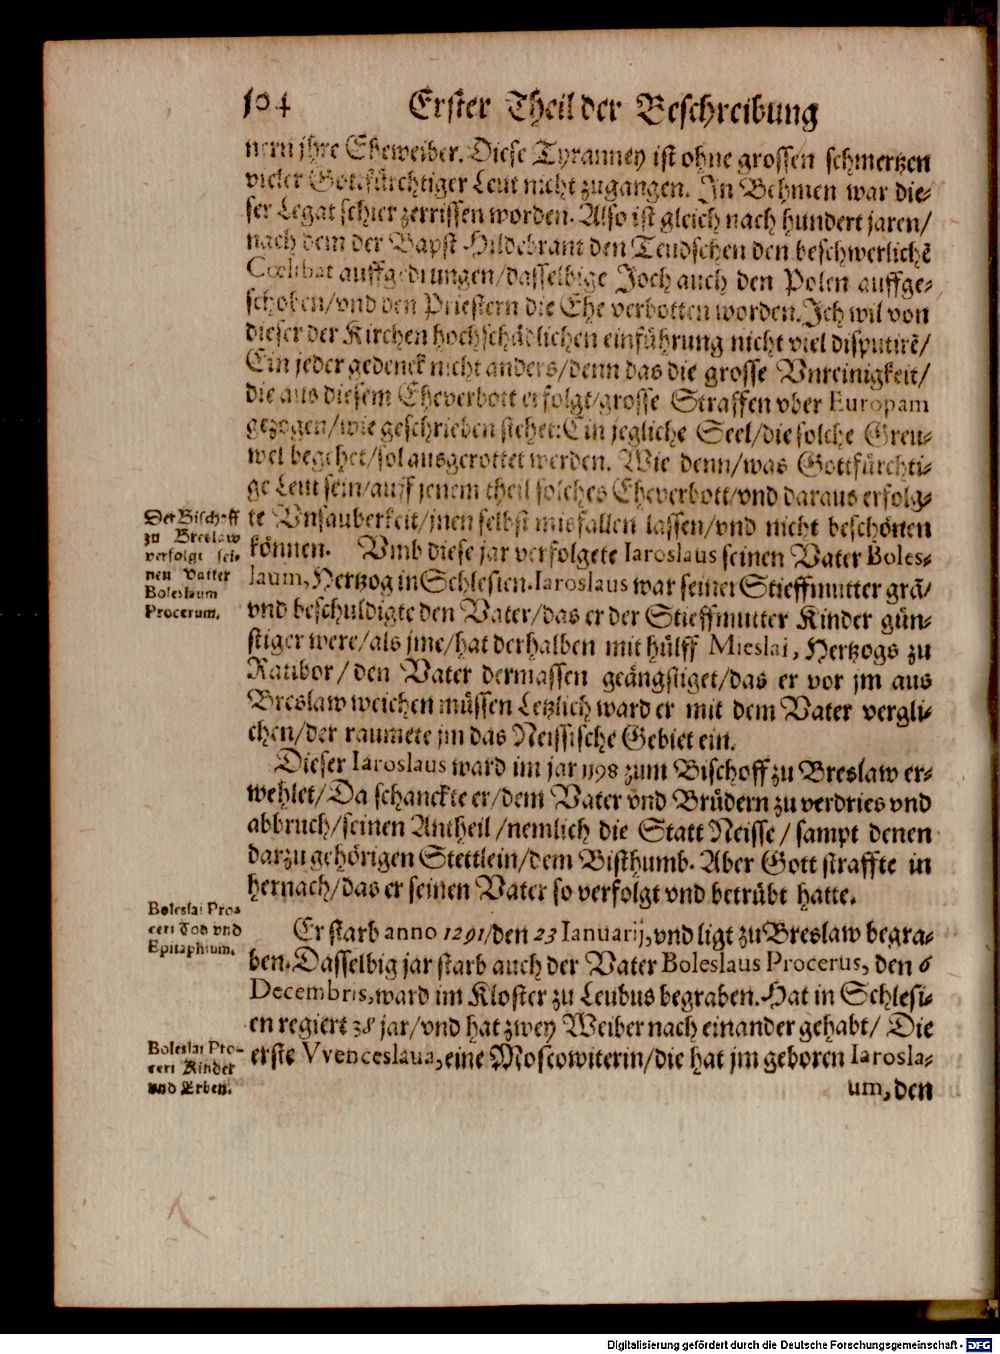 104 Erster Theil der Beschreibung
nern jhre Eheweiber. Diese Tyranney ist ohne grossen schmertzen
vieler Gottsfürchtiger Leut nicht zugangen. In Behmen war die-
ser Legat schier zerrissen worden. Also ist gleich nach hundert jaren/
nach dem der Bapst Hildebrant den Teudschen den beschwerlichē
Cœlibat auffgedrungen/dasselbige Joch auch den Polen auffge-
schoben/vnd den Priestern die Ehe verbotten worden. Ich wil von
dieser der Kirchen hochschädlichen einführung nicht viel disputirē/
Ein jeder gedenck nicht anders/denn das die grosse Vnreinigkeit/
die aus diesem Eheverbott erfolgt/grosse Straffen vber Europam
gezogen/wie geschrieben stehet: Ein jegliche Seel/die solche Greu-
wel begehet/sol ausgerottet werden. Wie denn/was Gottfürchti-
ge Leut sein/auff jenem theil solches Eheverbott/vnd daraus erfolg-
Der Bischoff
zu Breslaw
verfolgt sei-
nen Vatter
Boleslaum
Procerum.
te Vnsauberkeit/jnen selbst misfallen lassen/vnd nicht beschönen
können. Vmb diese jar verfolgete Iaroslaus seinen Vater Boles-
laum, Hertzog in Schlesien. Iaroslaus war seiner Stieffmutter grā/
vnd beschuldigte den Vater/das er der Stieffmutter Kinder gün-
stiger were/als jme/hat derhalben mit hülff Mieslai, Hertzogs zu
Ratibor/den Vater dermassen geängstiget/das er vor jm aus
Breslaw weichen müssen Letzlich ward er mit dem Vater vergli-
chen/der raumete jm das Neissische Gebiet ein.
Dieser Iaroslaus ward im jar 1198 zum Bischoff zu Breslaw er-
wehlet/Da schanckte er/dem Vater vnd Brüdern zu verdries vnd
abbruch/seinen Antheil/nemlich die Statt Neisse/sampt denen
darzu gehörigen Stettlein/dem Bisthumb. Aber Gott straffte in
hernach/das er seinen Vater so verfolgt vnd betrübt hatte.
Boleslai Pro-
ceri Tod vnd
Epitaphium.
Er starb anno 1291/den 23 Ianuarij, vnd ligt zu Breslaw begra-
ben. Dasselbig jar starb auch der Vater Boleslaus Procerus, den 6
Decembris, ward im Kloster zu Leubus begraben. Hat in Schlesi-
en regiert 38 jar/vnd hat zwey Weiber nach einander gehabt/Die
Boleslai Pro-
ceri Kinder
vnd Erben.
erste Vvenceslaua, eine Moscowiterin/die hat jm geboren Iarosla-
um, den
Digitalisierung gefördert durch die Deutsche Forschungsgemeinschaft - DFG